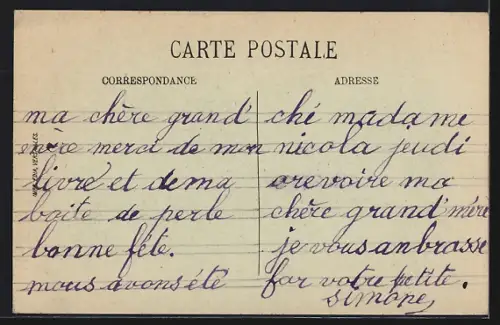 CARTE POSTALE
CORRESPONDANCE
ma chère grand'
mère merci de mon
livre et de ma
boite de perle
bonne féte.
nous avons été
ADRESSE
ché madame
nicola jeudi
orevoire ma
chère grand'mère
je vous anbrasse
for votre petite.
simone,